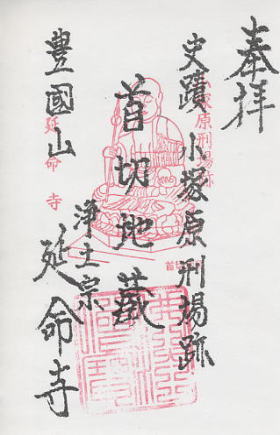 奉拝
史蹟 小塚原刑場跡
首切地蔵
浄土宗
豊國山 延命寺
延命寺